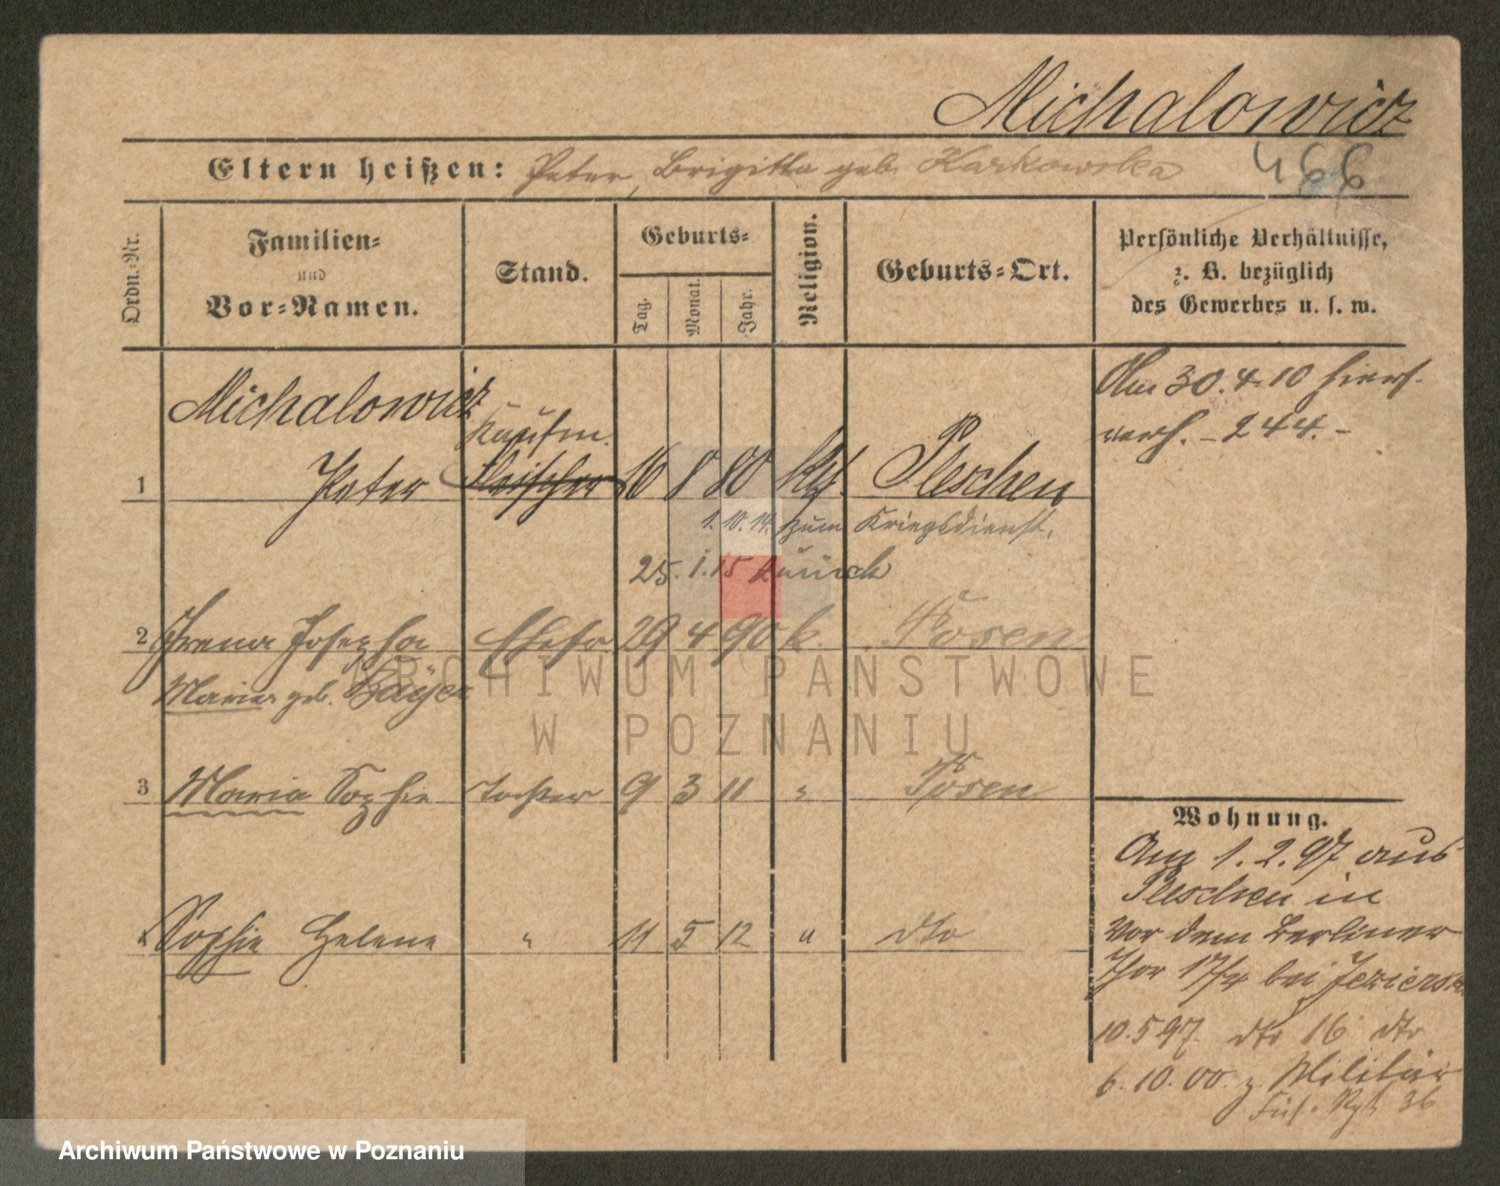 Michalowicz
Eltern heißen: Peter, Brigitta geb. Karkowska
466
Ordn.-Nr.
Familien-
und
Vor-Namen.
Stand.
Geburts-
Tag.
Monat.
Jahr.
Religion.
Geburts-Ort.
Persönliche Verhältnisse,
z. B. bezüglich
des Gewerbes u. s. w.
Michalowicz
Kaufm.
1 Peter Fleischer 16 8 80 Kth. Pleschen
Am 30.4.10 hiers.
verh. – 244. –
1. 10. 14. zum Kriegsdienst.
25. 1. 15 zurück
2 Irena Josepha Ehefr 29 4 90 k. Posen
Maria geb. Bayer
3 Maria Sophie Tochter 9 3 11 " Posen
4 Sophie Helene " 11 5 12 " dto
Wohnung.
Am 1. 2. 97 aus
Pleschen in
Vor dem Berliner
Thor 17/4 bei
10. 5 97. dto 16 dto
6. 10. 00. z. Militär
Füs. Rgt. 36
ARCHIWUM PAŃSTWOWE
W POZNANIU
Archiwum Państwowe w Poznaniu